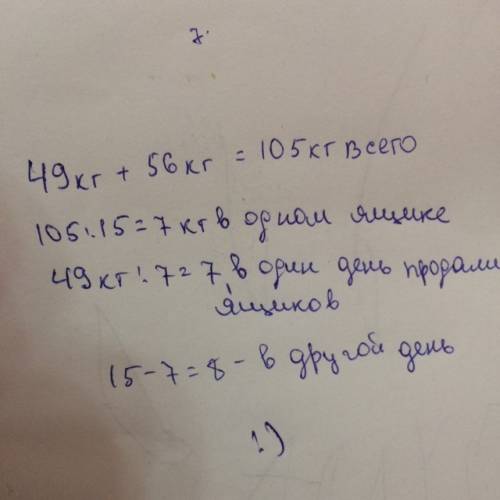 7.
49кг + 56кг = 105кг всего
105:15=7кг в одном ящике
49кг:7=7 в один день продали
ящиков
15-7=8 - в другой день
!)